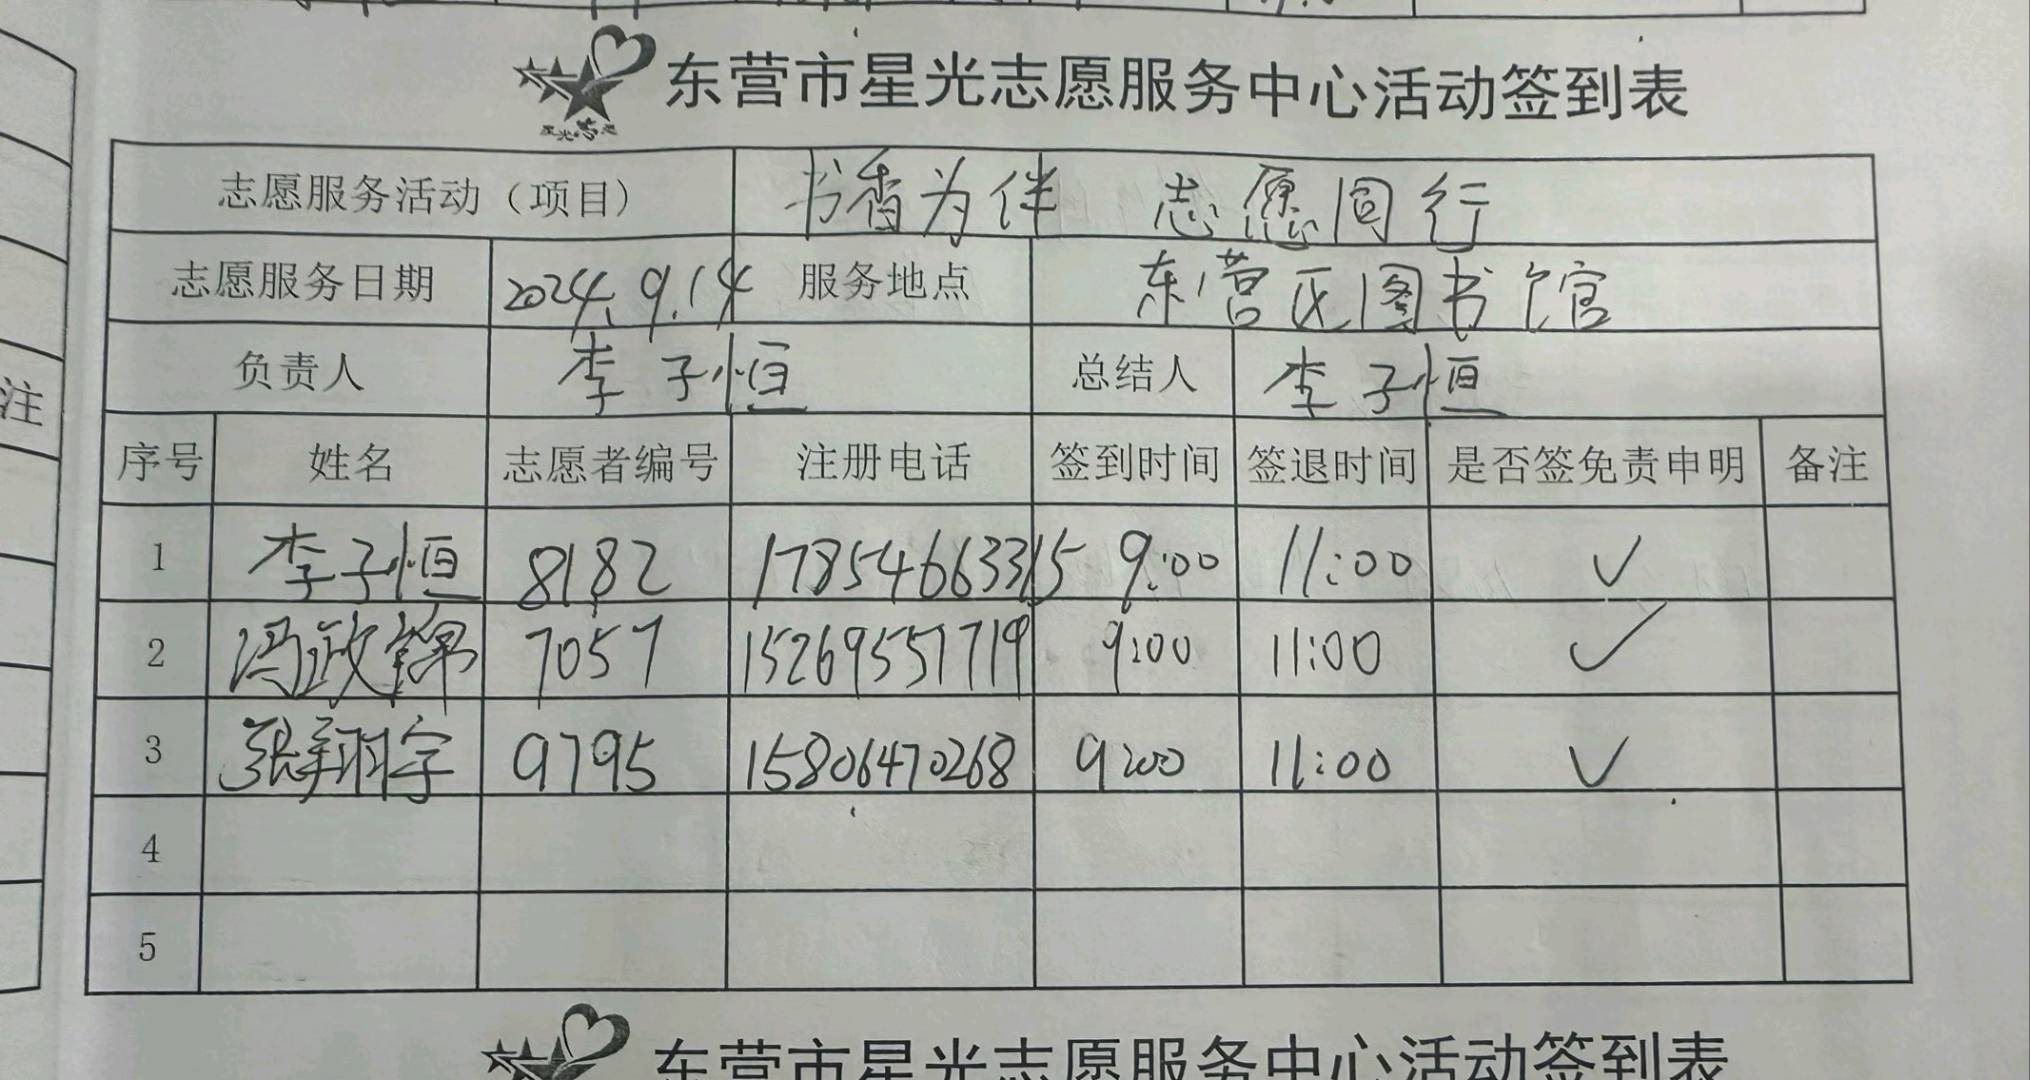 东营市星光志愿服务中心活动签到表
志愿服务活动（项目） 书香为伴 志愿同行
志愿服务日期 2024.9.14 服务地点 东营区图书馆
负责人 李子恒 总结人 李子恒
注
序号 姓名 志愿者编号 注册电话 签到时间 签退时间 是否签免责申明 备注
1 李子恒 8182 17854663315 9:00 11:00 ✓
2 冯政锦 7057 15269557719 9:00 11:00 ✓
3 张翔宇 9795 15806470268 9:00 11:00 ✓
4
5
东营市星光志愿服务中心活动签到表